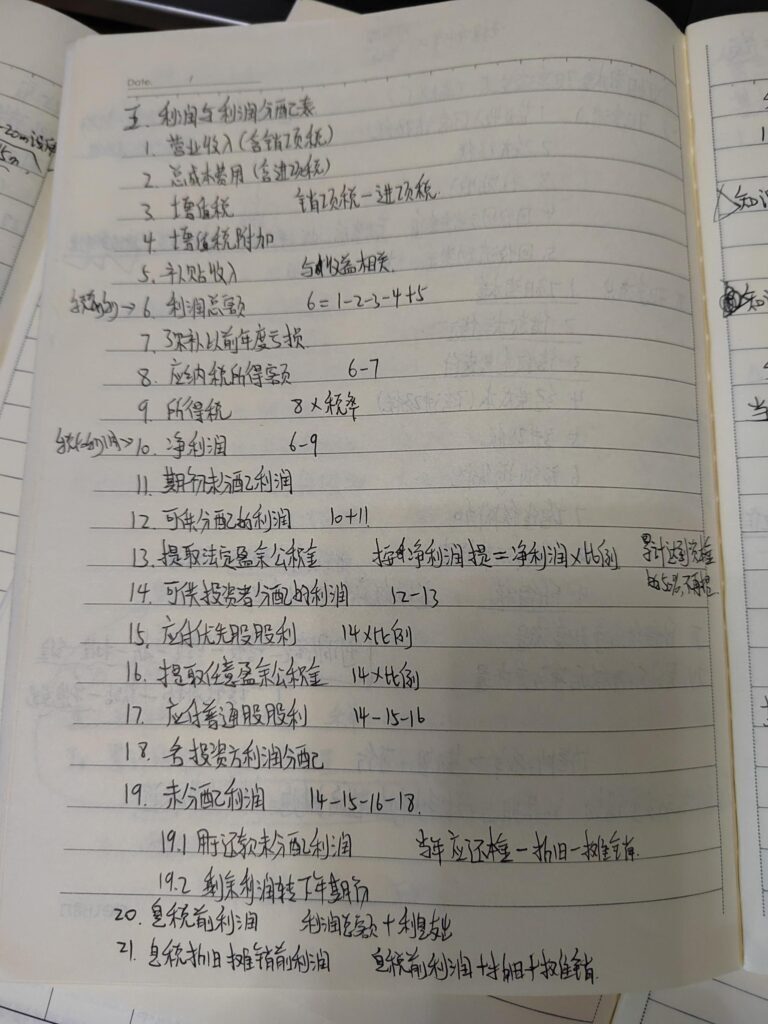 Date.
五. 利润与利润分配表
1. 营业收入(含销项税)
2. 总成本费用(含进项税)
3 增值税 销项税-进项税
4. 增值税附加
5. 补贴收入 与收益相关.
6. 利润总额 6=1-2-3-4+5
7. 弥补以前年度亏损
8. 应纳税所得额 6-7
9. 所得税 8×税率
10. 净利润 6-9
11. 期初未分配利润
12. 可供分配的利润 10+11
13. 提取法定盈余公积金 按净利润提=净利润×比例 累计达到 的50%,不再提
14. 可供投资者分配的利润 12-13
15. 应付优先股股利 14×比例
16. 提取任意盈余公积金 14×比例
17. 应付普通股股利 14-15-16
18. 各投资方利润分配
19. 未分配利润 14-15-16-18.
19.1 用于还款未分配利润 当年应还本金-折旧-摊销.
19.2 剩余利润转下年期初
20. 息税前利润 利润总额+利息支出
21. 息税折旧摊销前利润 息税前利润+折旧+摊销.